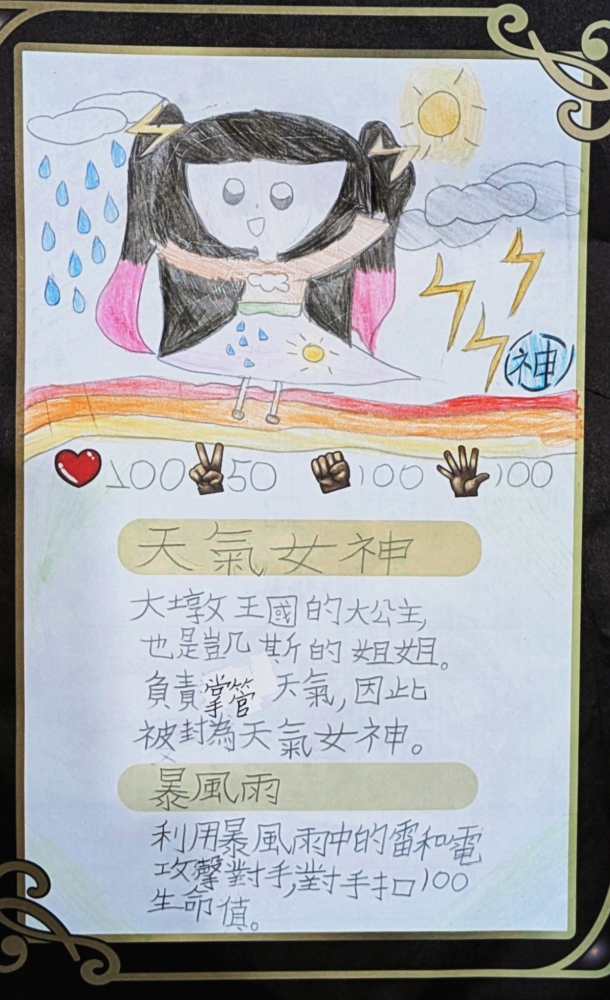 神
200 50 100 100
天氣女神
大墩王國的大公主,
也是凱几斯的姐姐。
負責掌管天氣,因此
被封為天氣女神。
暴風雨
利用暴風雨中的雷和電
攻擊對手,對手扣100
生命值。